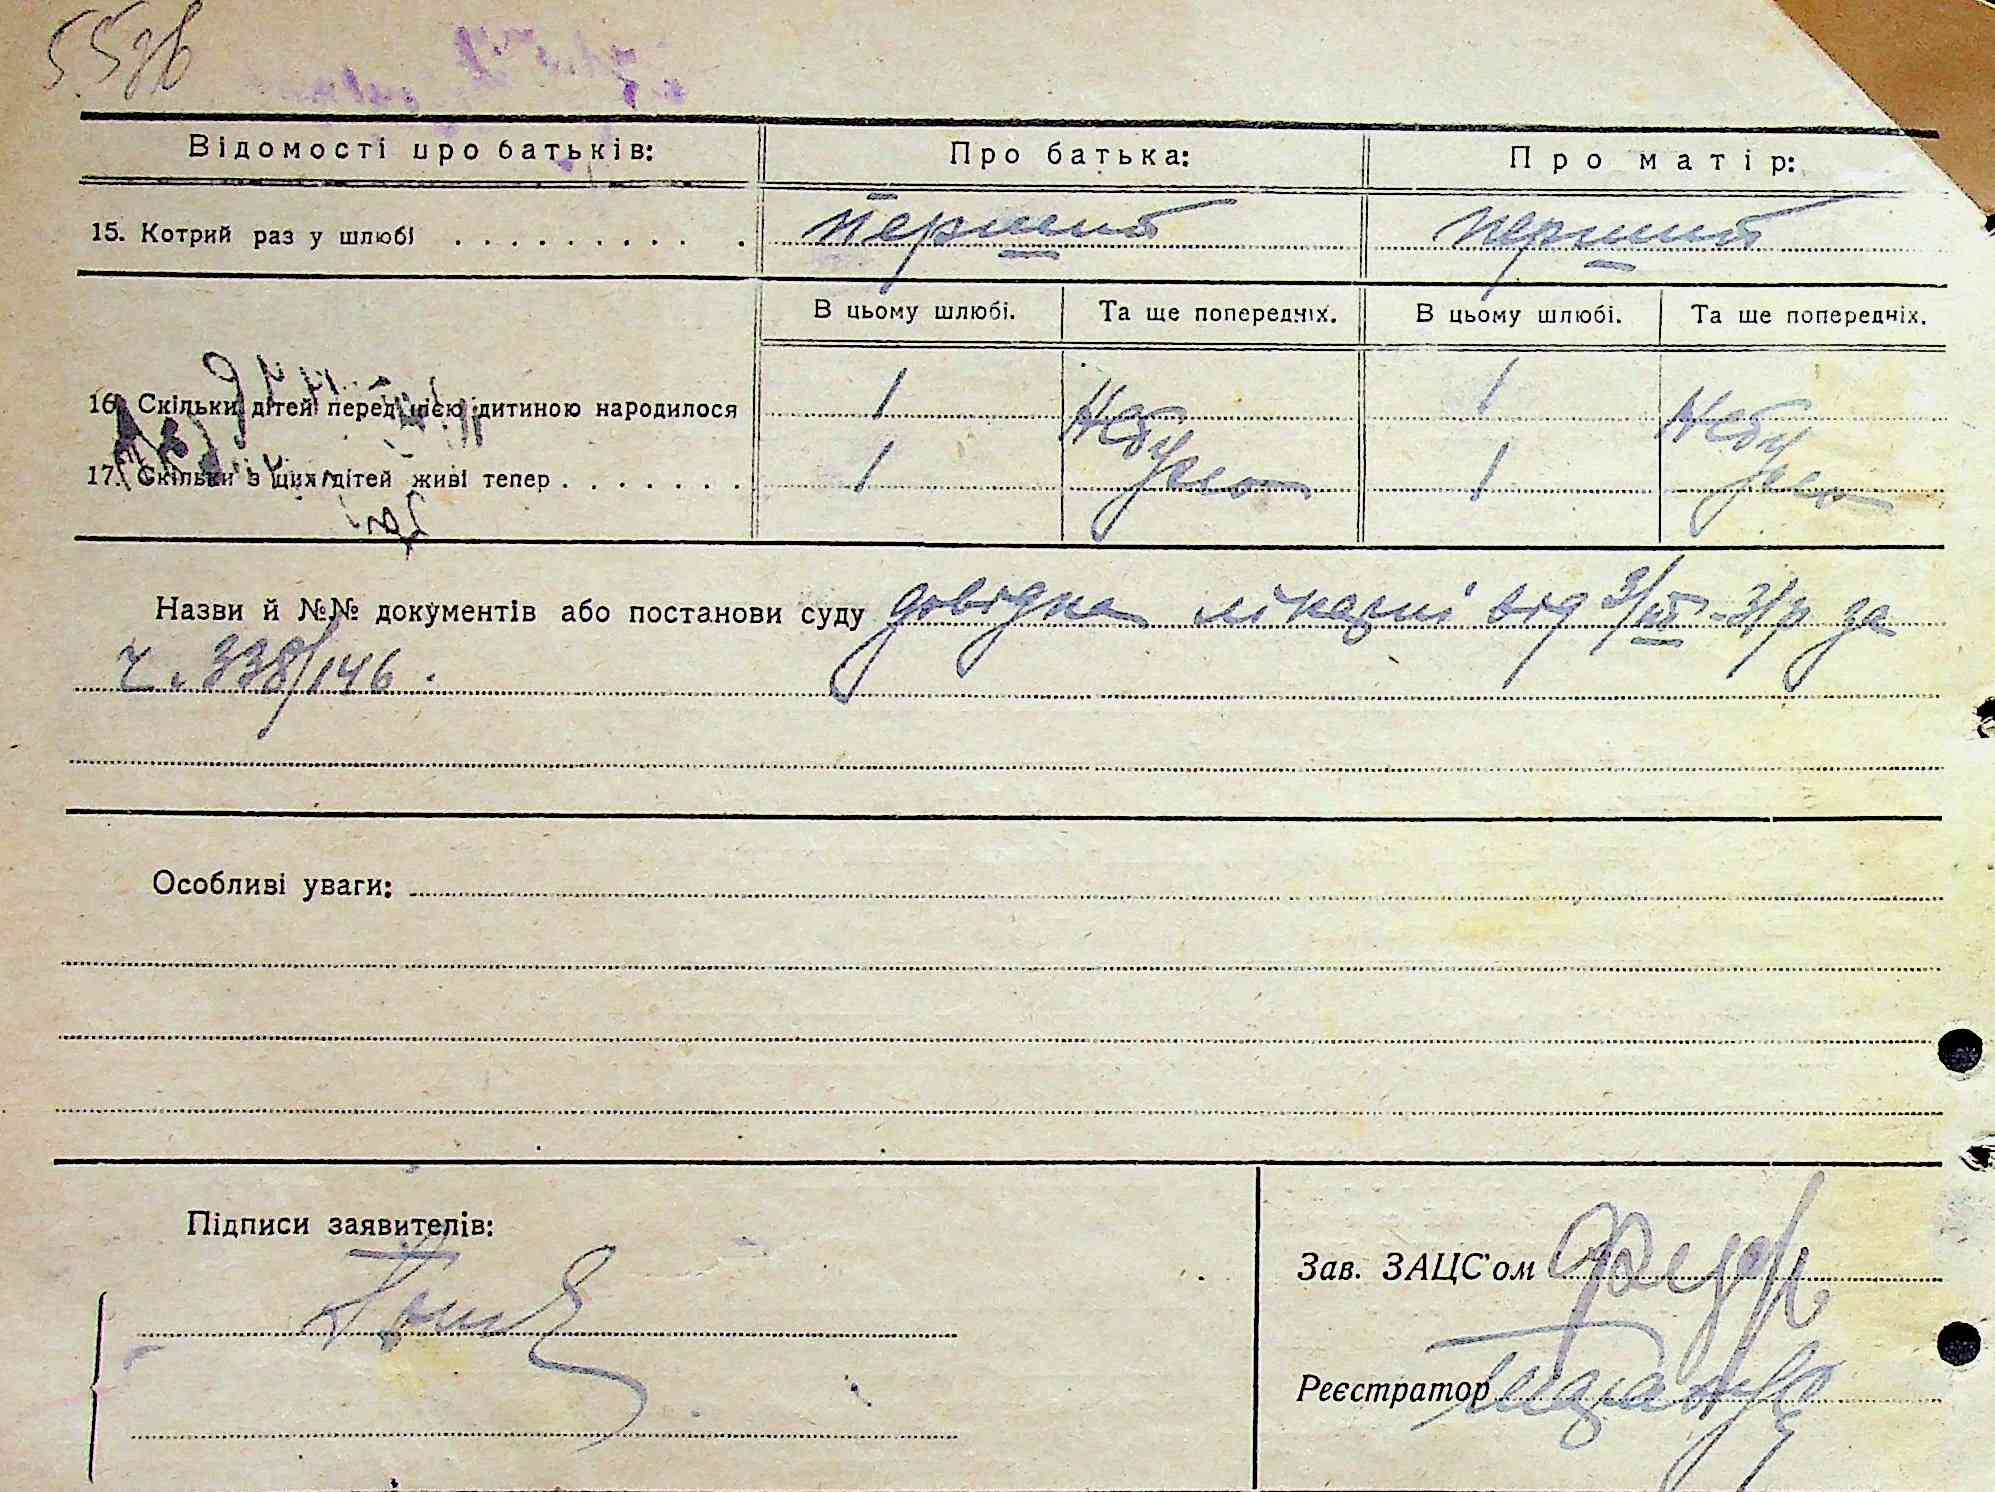 55зв
Відомості про батьків: Про батька: Про матір:
15. Котрий раз у шлюбі . . . . . . . . . . перший перший
В цьому шлюбі. Та ще попередніх. В цьому шлюбі. Та ще попередніх.
16. Скільки дітей перед цією дитиною народилося 1 Не було 1 Не було
17. Скільки з цих дітей живі тепер . . . . . . . 1 1
Назви й №№ документів або постанови суду довідка лікарні від 3/VII-31р за
ч. 338/146.
Особливі уваги:
Підписи заявителів:
Зав. ЗАЦС'ом
Реєстратор